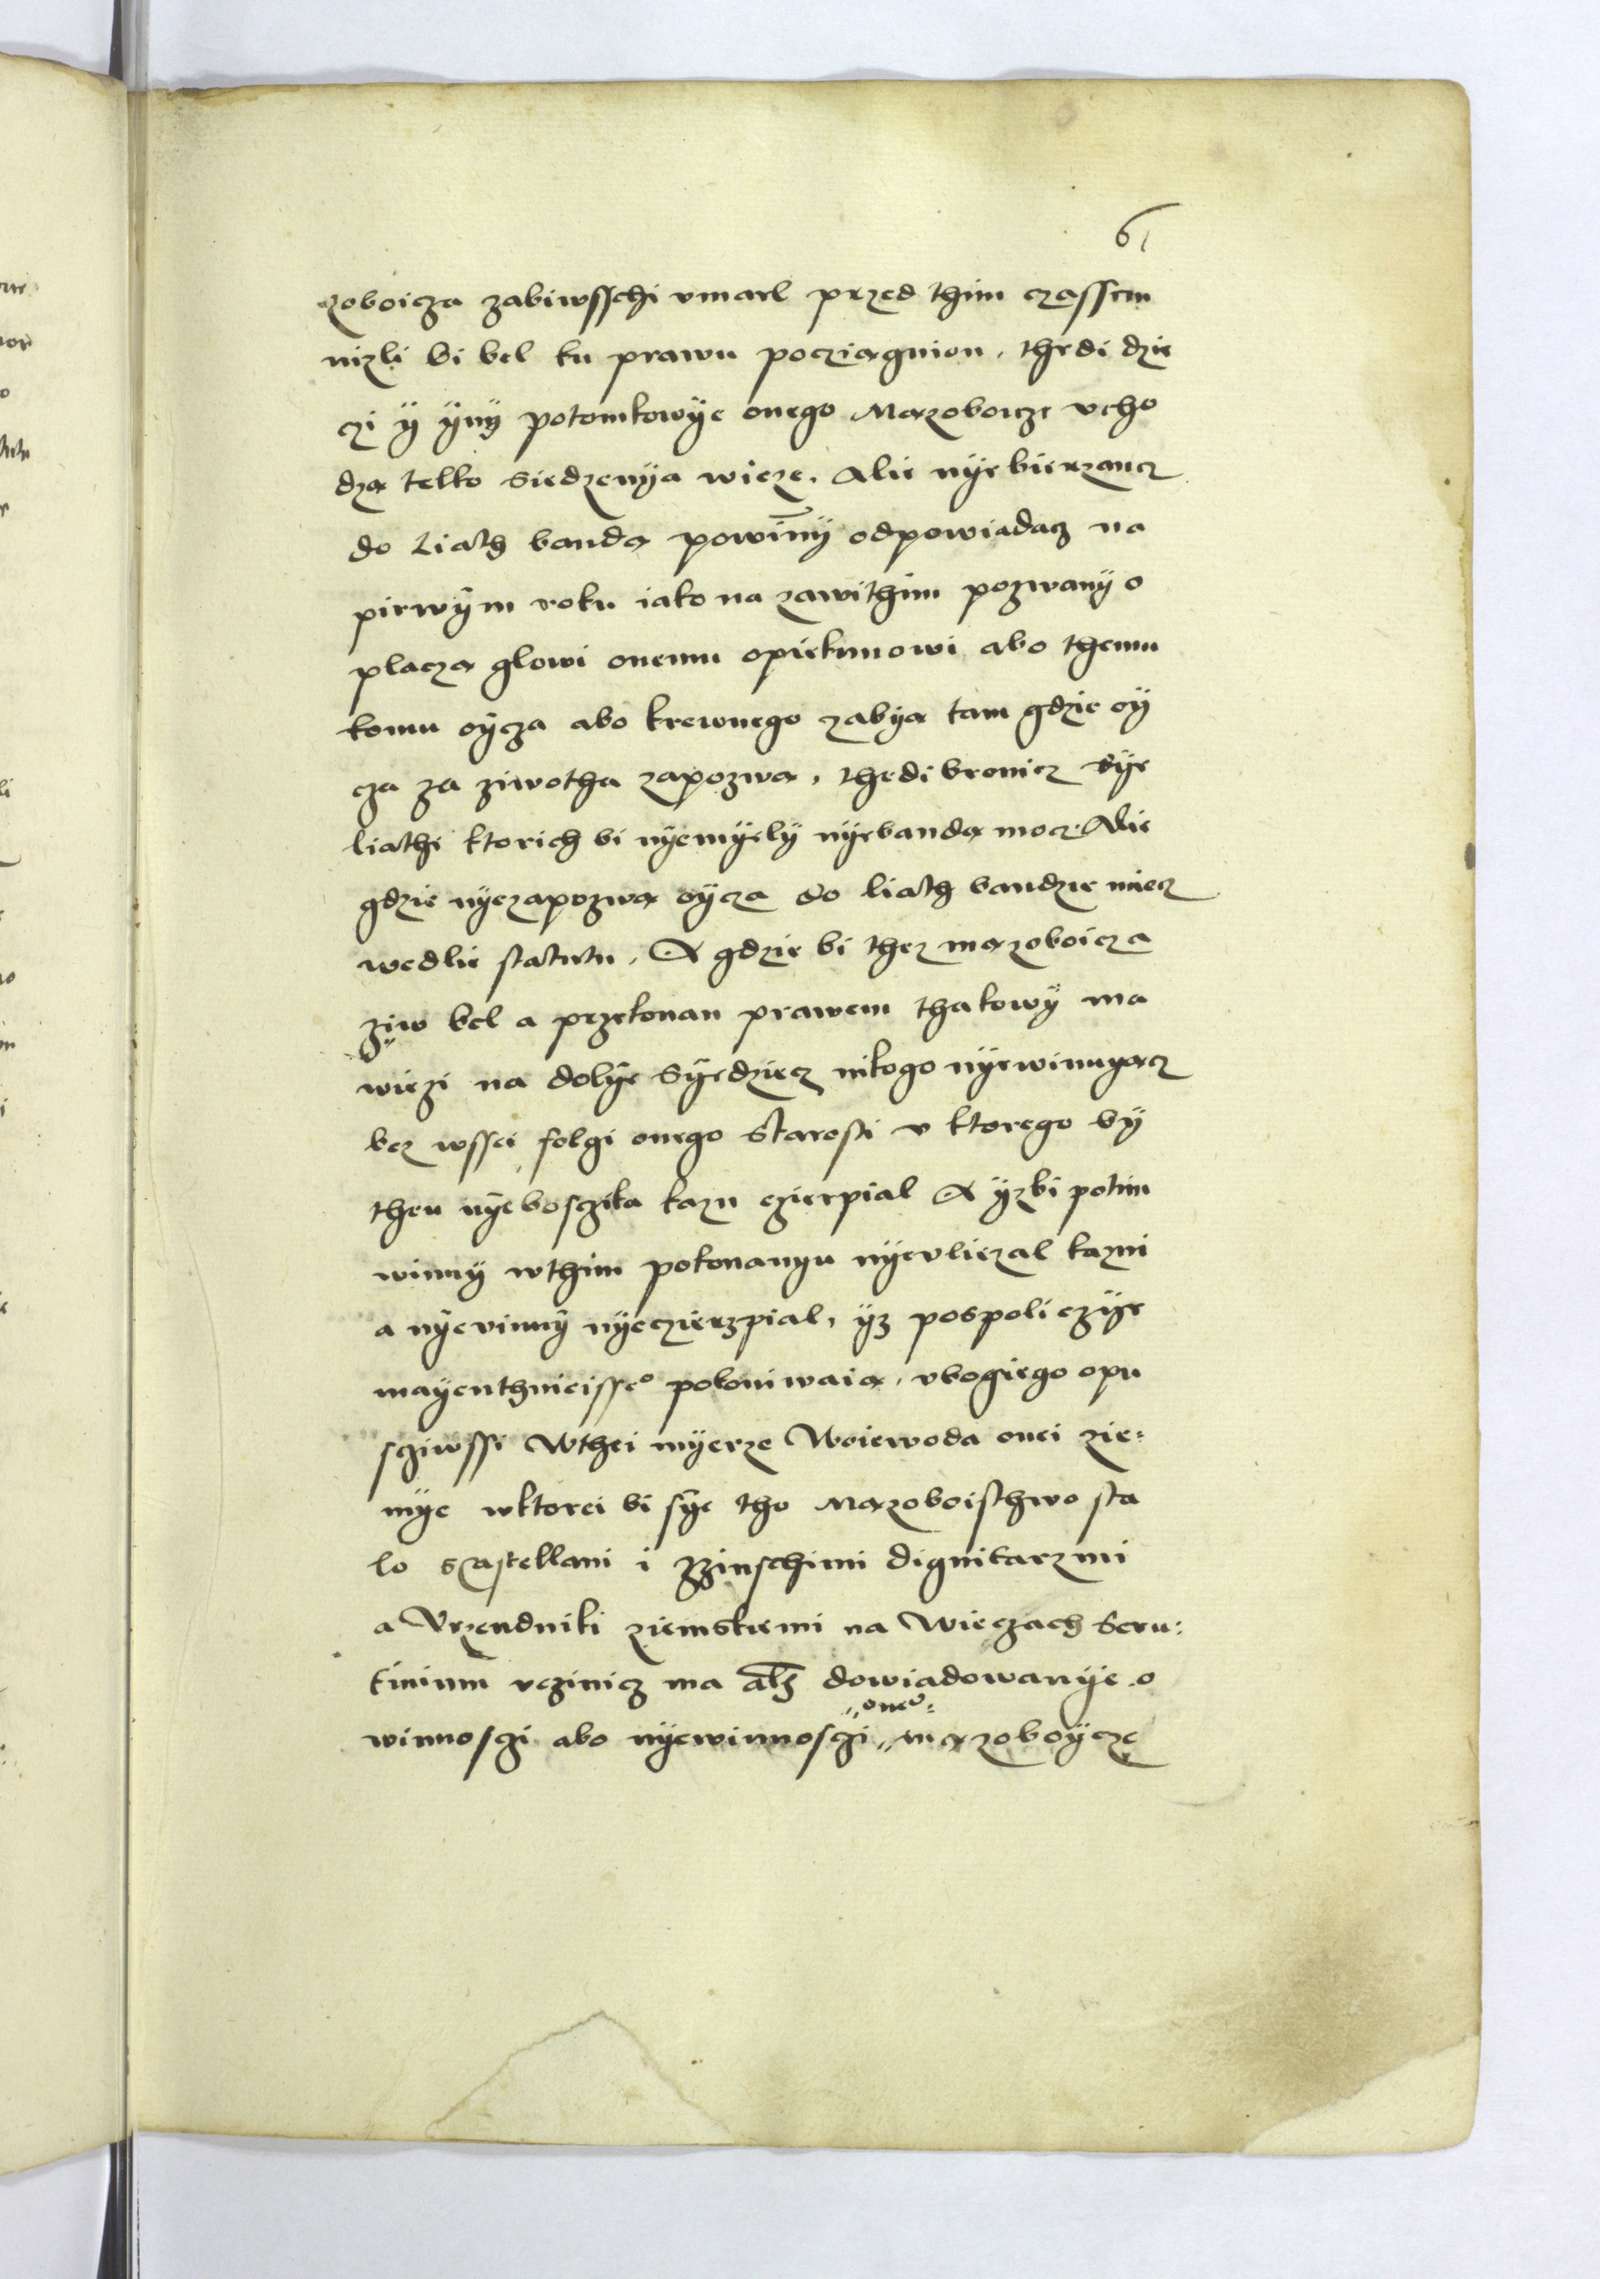 61
zoboicza zabiwsschi vmarl przed thim czassem
nizli bi bel ku prawu pocziągnion, thedi dzie
czi ÿ ÿnÿ potomkowÿe onego Mązoboicze vcho
dzą telko Siedzenÿa wieze. Alie nÿebierzancz
do Liath bandą powinnÿ odpowiadacz na
pirwÿm roku iako na zawithim pozwanÿ o
placzą glowi onemu opiekunowi abo themu
komu oÿcza abo krewnego zabÿą tam gdzie oÿ
cza za ziwotha zapozwą, thedi bronicz sÿe
liathi ktorich bi nÿemÿelÿ nÿebandą mocz. Alie
gdzie nÿezapozwą oÿcza do liath bandzie miecz
wedlie statutu. A gdzie bi thez mązoboicza
ziw bel a przekonan prawem thakowÿ ma
wiezi na dolÿe Sÿedziecz nikogo nÿewinuyącz
bez wssei folgi onego Starosti v ktorego bÿ
then nÿeboszika kazn czierpial A ÿzbi potim
winnÿ wthim pokonanyu nÿevliezal kazni
a nÿevinnÿ nÿeczierzpial, ÿz pospoliczÿe
mayenthnieisse° poloniwaią, vbogiego opu
sciwssi Wthei mÿerze Woiewoda onei zie=
mÿe wktorei bi sÿe tho Mązoboisthwo sta
lo S Castellani i Zzinschimi dignitarzmi
a Vrzendniki ziemskiemi na Wieczach Scru=
tinium vczinicz ma als dowiadowanÿe o
winnosczi abo nÿewinnosczi „one°„ mązoboÿcze